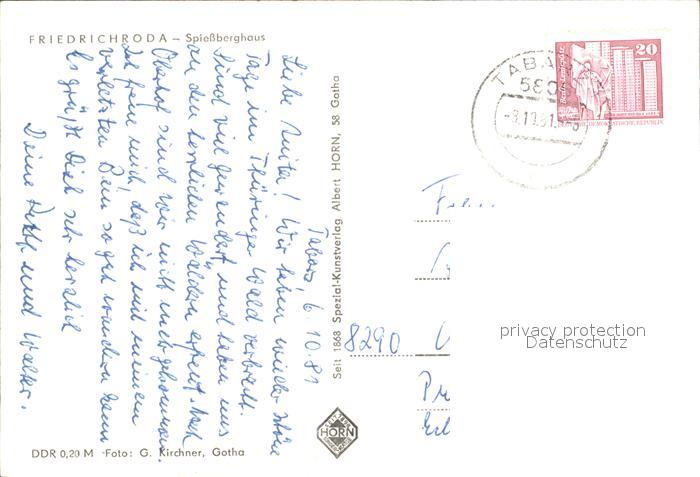 FRIEDRICHRODA – Spießberghaus
Tabarz 6.10.81
Liebe Anita! Wir haben wieder schöne
Tage im Thüringer Wald verbracht.
Sind viel gewandert und haben uns
an den herrlichen Wäldern erfreut. Nach
Oberhof sind wir nicht mehr gekommen.
Ich freue mich, daß ich mit meinem
verletzten Bein so gut wandern kann
Es grüßt Dich sehr herzlich
Deine und Walter.
DDR 0,20 M Foto: G. Kirchner, Gotha
Seit 1868 Spezial-Kunstverlag Albert HORN, 58 Gotha
HORN
TABARZ
580
20
DEMOKRATISCHE REPUBLIK
8290
privacy protection
Datenschutz